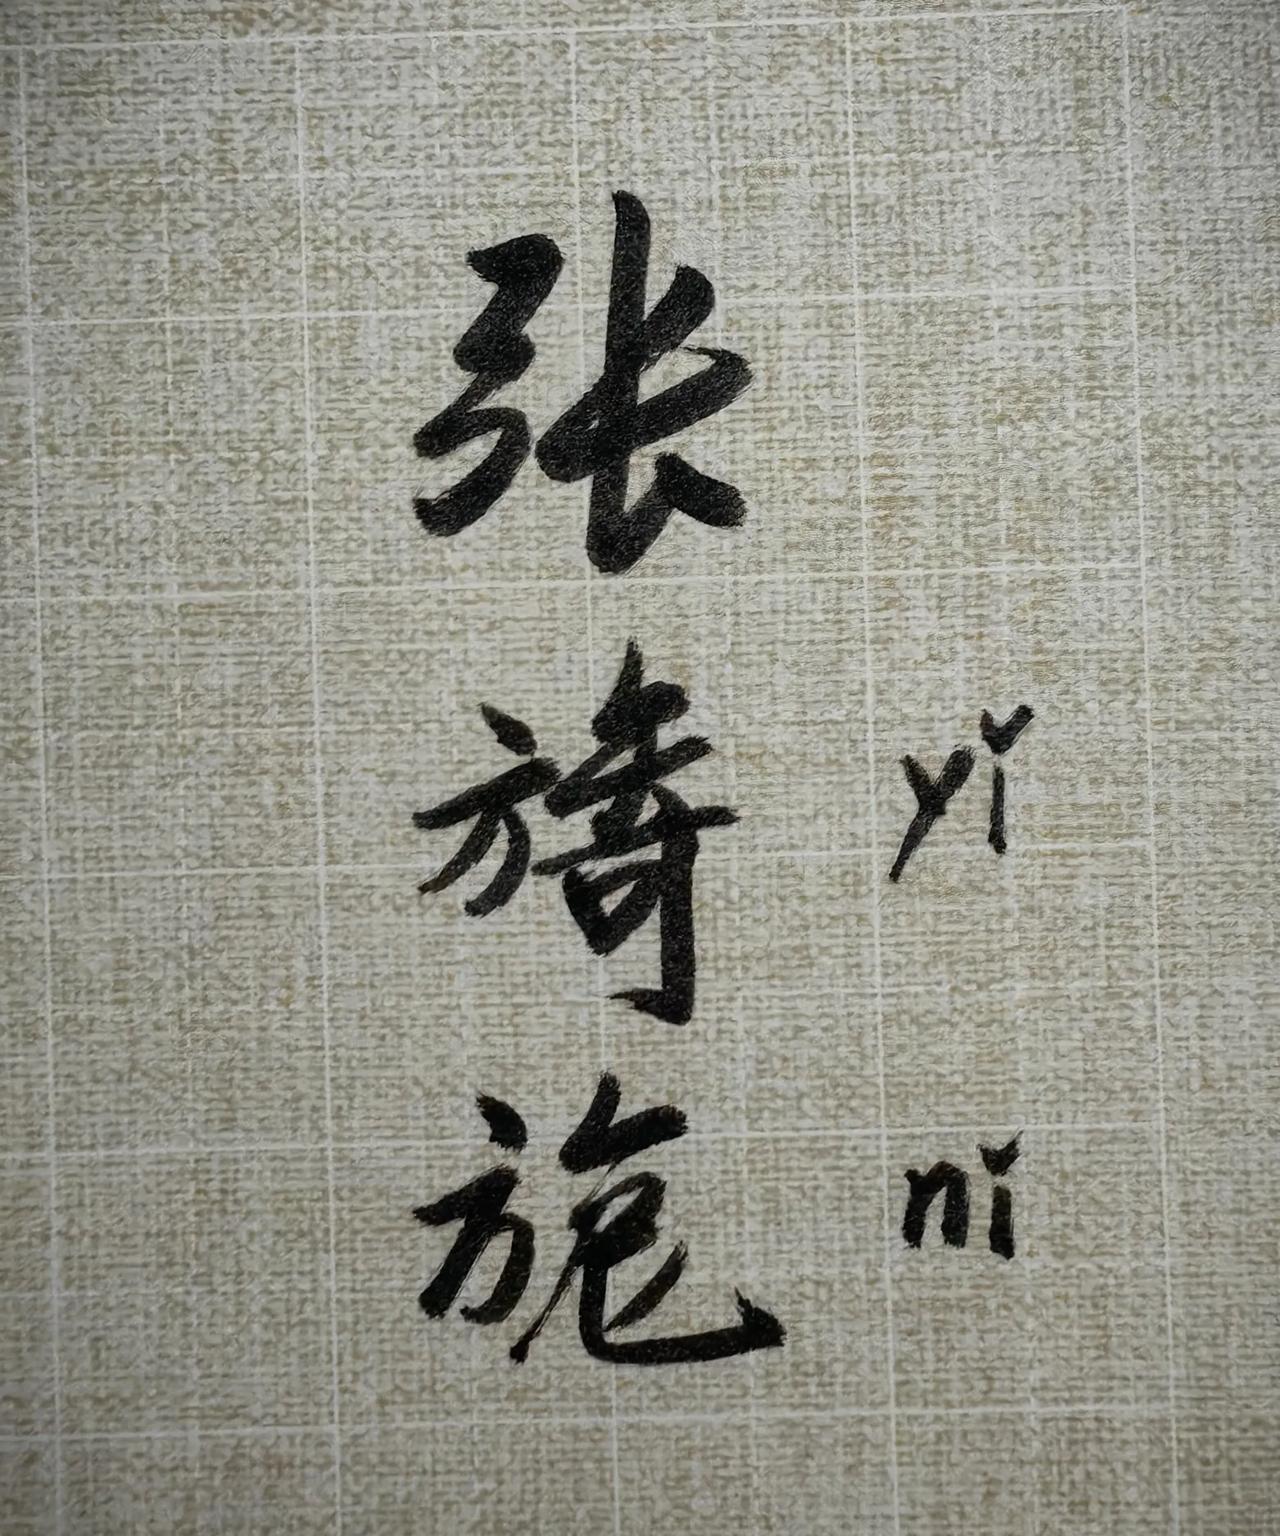 张
旖 yǐ
旎 nǐ